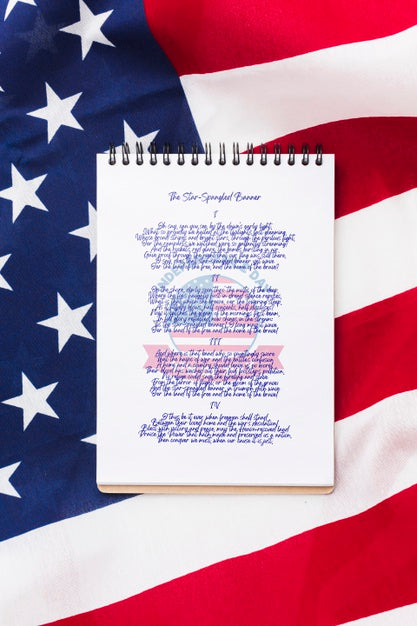 The Star-Spangled Banner
I
Oh, say, can you see, by the dawn's early light,
What so proudly we hailed at the twilight's last gleaming,
Whose broad stripes and bright stars, through the perilous fight,
O'er the ramparts we watched were so gallantly streaming?
And the rocket's red glare, the bombs bursting in air,
Gave proof through the night that our flag was still there,
O! say, does that star-spangled banner yet wave
O'er the land of the free and the home of the brave?
II
On the shore, dimly seen thro' the mists of the deep,
Where the foe's haughty host in dread silence reposes,
What is that which the breeze, o'er the towering steep,
As it fitfully blows, half conceals, half discloses?
Now it catches the gleam of the morning's first beam,
In full glory reflected now shines in the stream;
'Tis the star-spangled banner! O! long may it wave
O'er the land of the free and the home of the brave!
III
And where is that band who so vauntingly swore
That the havoc of war and the battle's confusion
A home and a country should leave us no more?
Their blood has washed out their foul footsteps' pollution
No refuge could save the hireling and slave
From the terror of flight, or the gloom of the grave;
And the star-spangled banner in triumph doth wave
O'er the land of the free and the home of the brave!
IV
O! thus be it ever, when freemen shall stand
Between their loved home and the war's desolation!
Blest with victory and peace, may the heaven-rescued land
Praise the Power that hath made and preserved us a nation,
Then conquer we must, when our cause it is just,